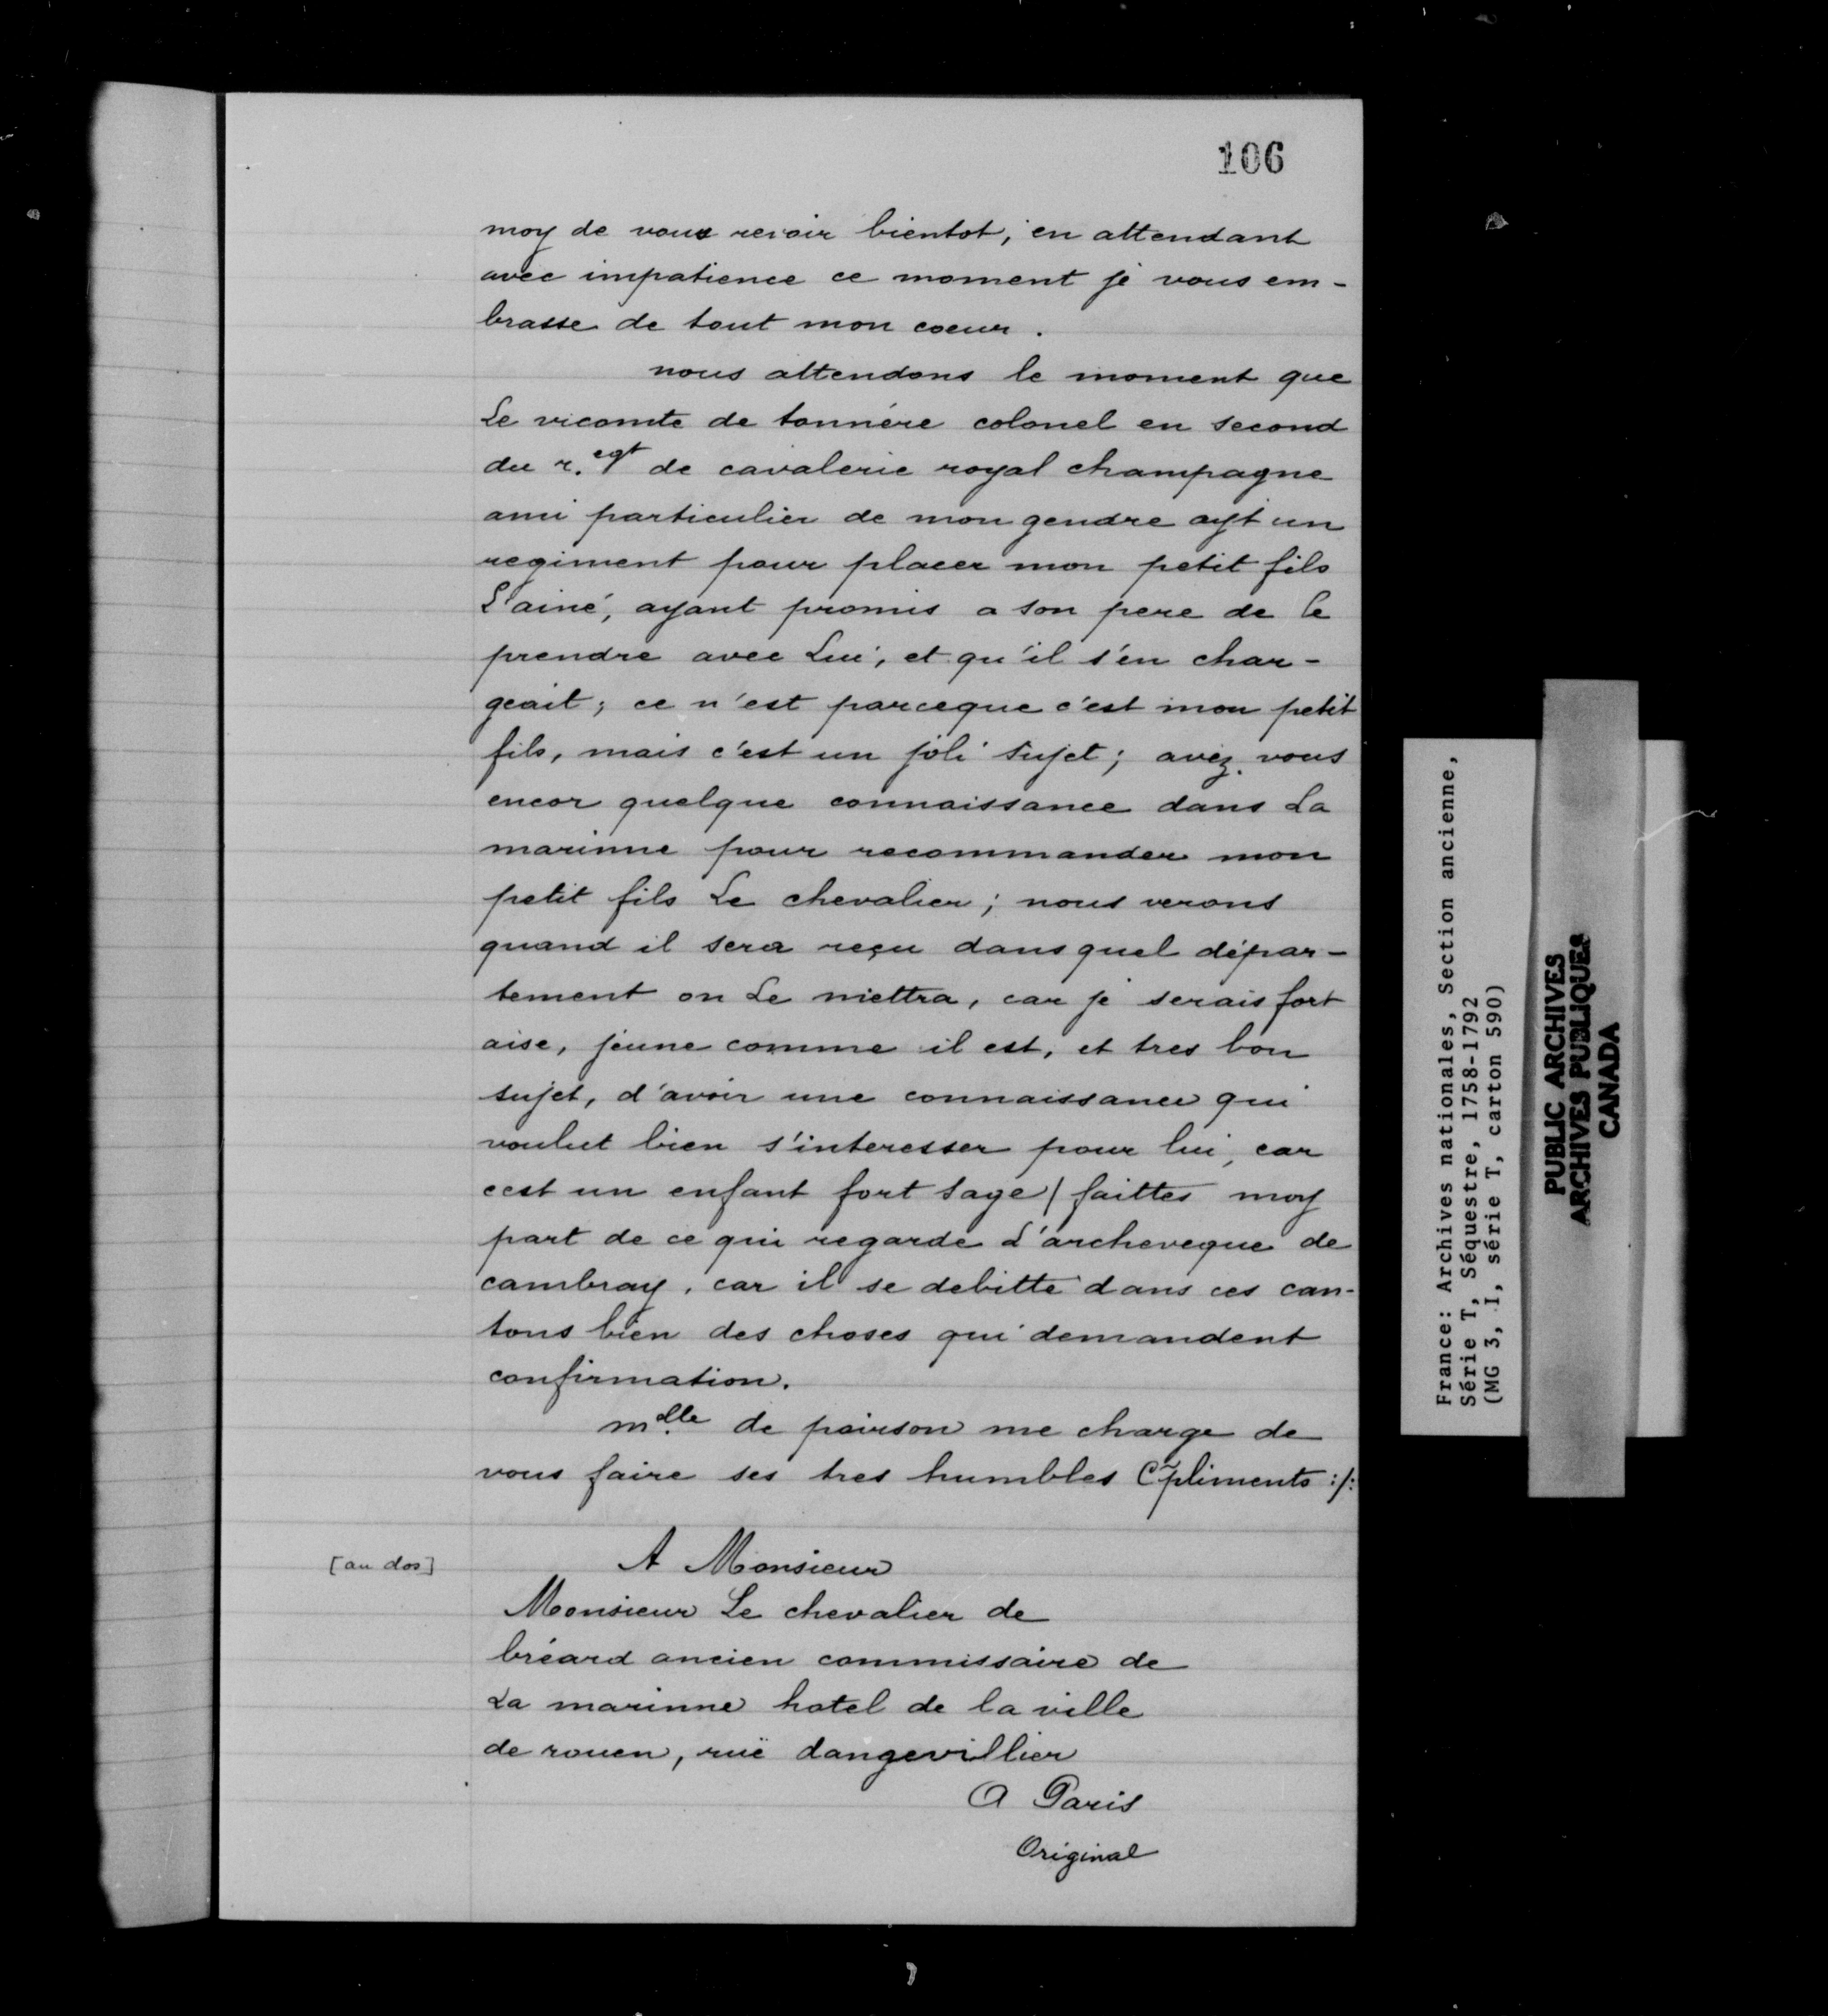 106
moy de vous revoir bientot, en attendant
avec impatience ce moment je vous em-
brasse de tout mon coeur.
nous attendons le moment que
Le vicomte de tonnére colonel en second
du r.egt de cavalerie royal champagne
ami particulier de mon gendre ayt un
regiment pour placer mon petit fils
L'ainé, ayant promis a son pere de le
prendre avec Lui, et qu'il s'en char-
geait; ce n'est parceque c'est mon petit
fils, mais c'est un joli sujet; avez vous
encor quelque connaissance dans La
marinne pour recommander mon
petit fils Le chevalier; nous verons
quand il sera reçu dans quel dépar-
tement on Le mettra, car je serais fort
aise, jeune comme il est, et tres bon
sujet, d'avoir une connaissance qui
voulut bien s'interesser pour lui, car
cest un enfant fort sage / faittes moy
part de ce qui regarde L'archeveque de
cambray, car il se debitte dans ces can-
tons bien des choses qui demandent
confirmation.
m.elle de poirson me charge de
vous faire ses tres humbles Cõpliments :/:
[au dos]
A Monsieur
Monsieur Le chevalier de
bréard ancien commissaire de
La marinne hotel de la ville
de rouen, ruë dangevillier
A Paris
Original
France: Archives nationales, Section ancienne,
Série T, Séquestre, 1758-1792
(MG 3, I, série T, carton 590)
PUBLIC ARCHIVES
ARCHIVES PUBLIQUES
CANADA